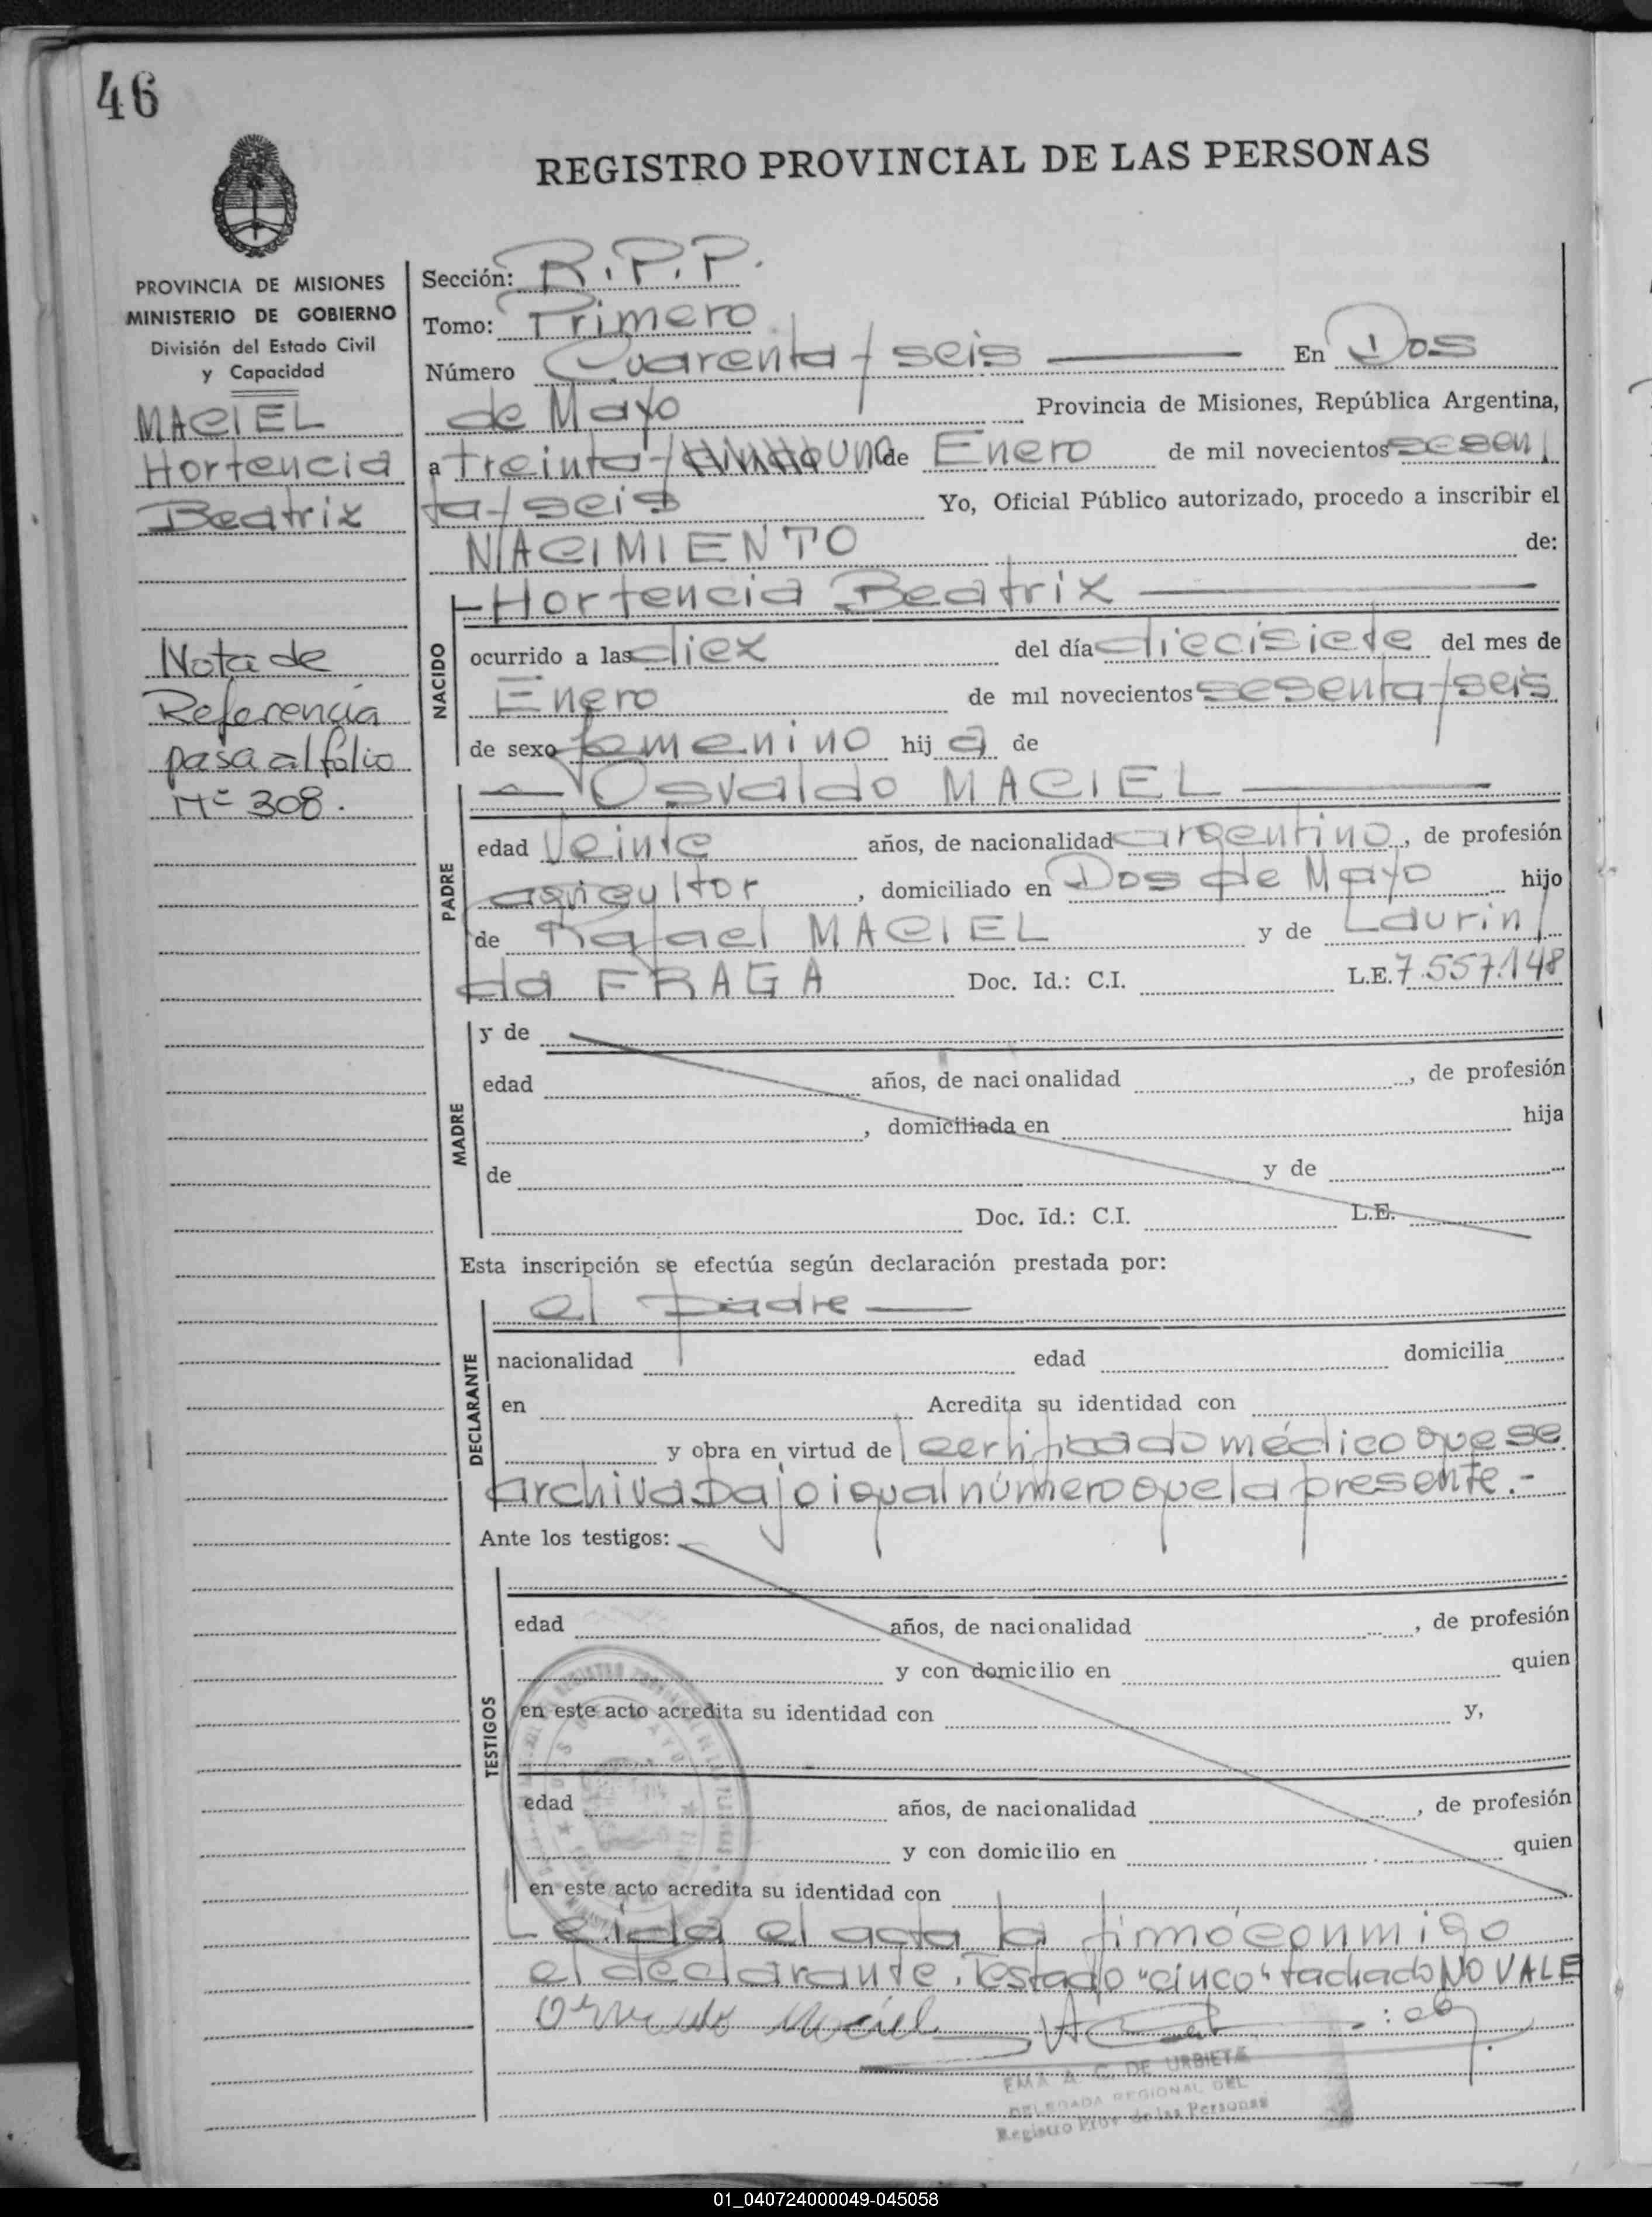 46
REGISTRO PROVINCIAL DE LAS PERSONAS
PROVINCIA DE MISIONES
MINISTERIO DE GOBIERNO
División del Estado Civil
y Capacidad
MACIEL
Hortencia
Beatrix
Nota de
Referencia
pasa al folio
Nº 308.
Sección: R.P.P.
Tomo: Primero
Número Cuarenta y seis En Dos
de Mayo Provincia de Misiones, República Argentina,
a treinta y cinco uno de Enero de mil novecientos sesen
ta y seis Yo, Oficial Público autorizado, procedo a inscribir el
NACIMIENTO de:
NACIDO
Hortencia Beatrix
ocurrido a las diez del día diecisiete del mes de
Enero de mil novecientos sesenta y seis
de sexo femenino hij a de
PADRE
Osvaldo MACIEL
edad veinte años, de nacionalidad argentino, de profesión
agricultor, domiciliado en Dos de Mayo hijo
de Rafael MACIEL y de Laurin
da FRAGA Doc. Id.: C.I. L.E. 7.557.148
MADRE
y de
edad años, de nacionalidad , de profesión
, domiciliada en hija
de y de
Doc. Id.: C.I. L.E.
Esta inscripción se efectúa según declaración prestada por:
DECLARANTE
el padre
nacionalidad edad domicilia
en Acredita su identidad con
y obra en virtud de certificado médico que se
archiva bajo igual número que la presente.-
Ante los testigos:
TESTIGOS
edad años, de nacionalidad , de profesión
y con domicilio en quien
en este acto acredita su identidad con y,
edad años, de nacionalidad , de profesión
y con domicilio en quien
en este acto acredita su identidad con
Leída el acta la firmó conmigo
el declarante. Testado "cinco" tachado NO VALE
Osvaldo Maciel
EMA A. C. DE URBIETA
DELEGADA REGIONAL DEL
Registro Prov. de las Personas
01_040724000049-045058